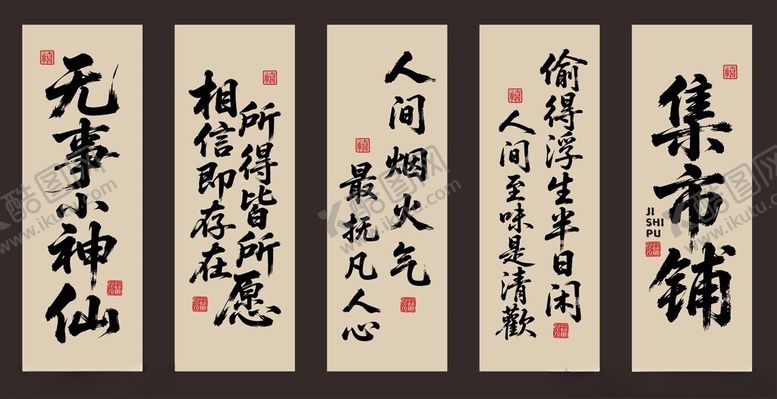 无事小神仙
所得皆所愿
相信即存在
人间烟火气
最抚凡人心
偷得浮生半日闲
人间至味是清歡
集市铺
JI
SHI
PU